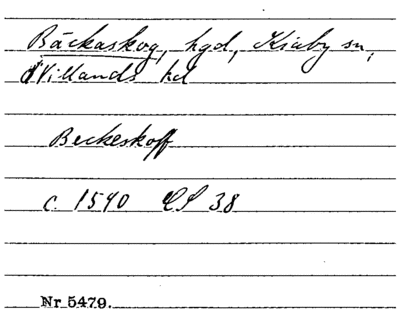 Bäckaskog, hgd, Kiaby sn,
Villands hd
Beckeskoff
c. 1540 LS 38
Nr 5479.